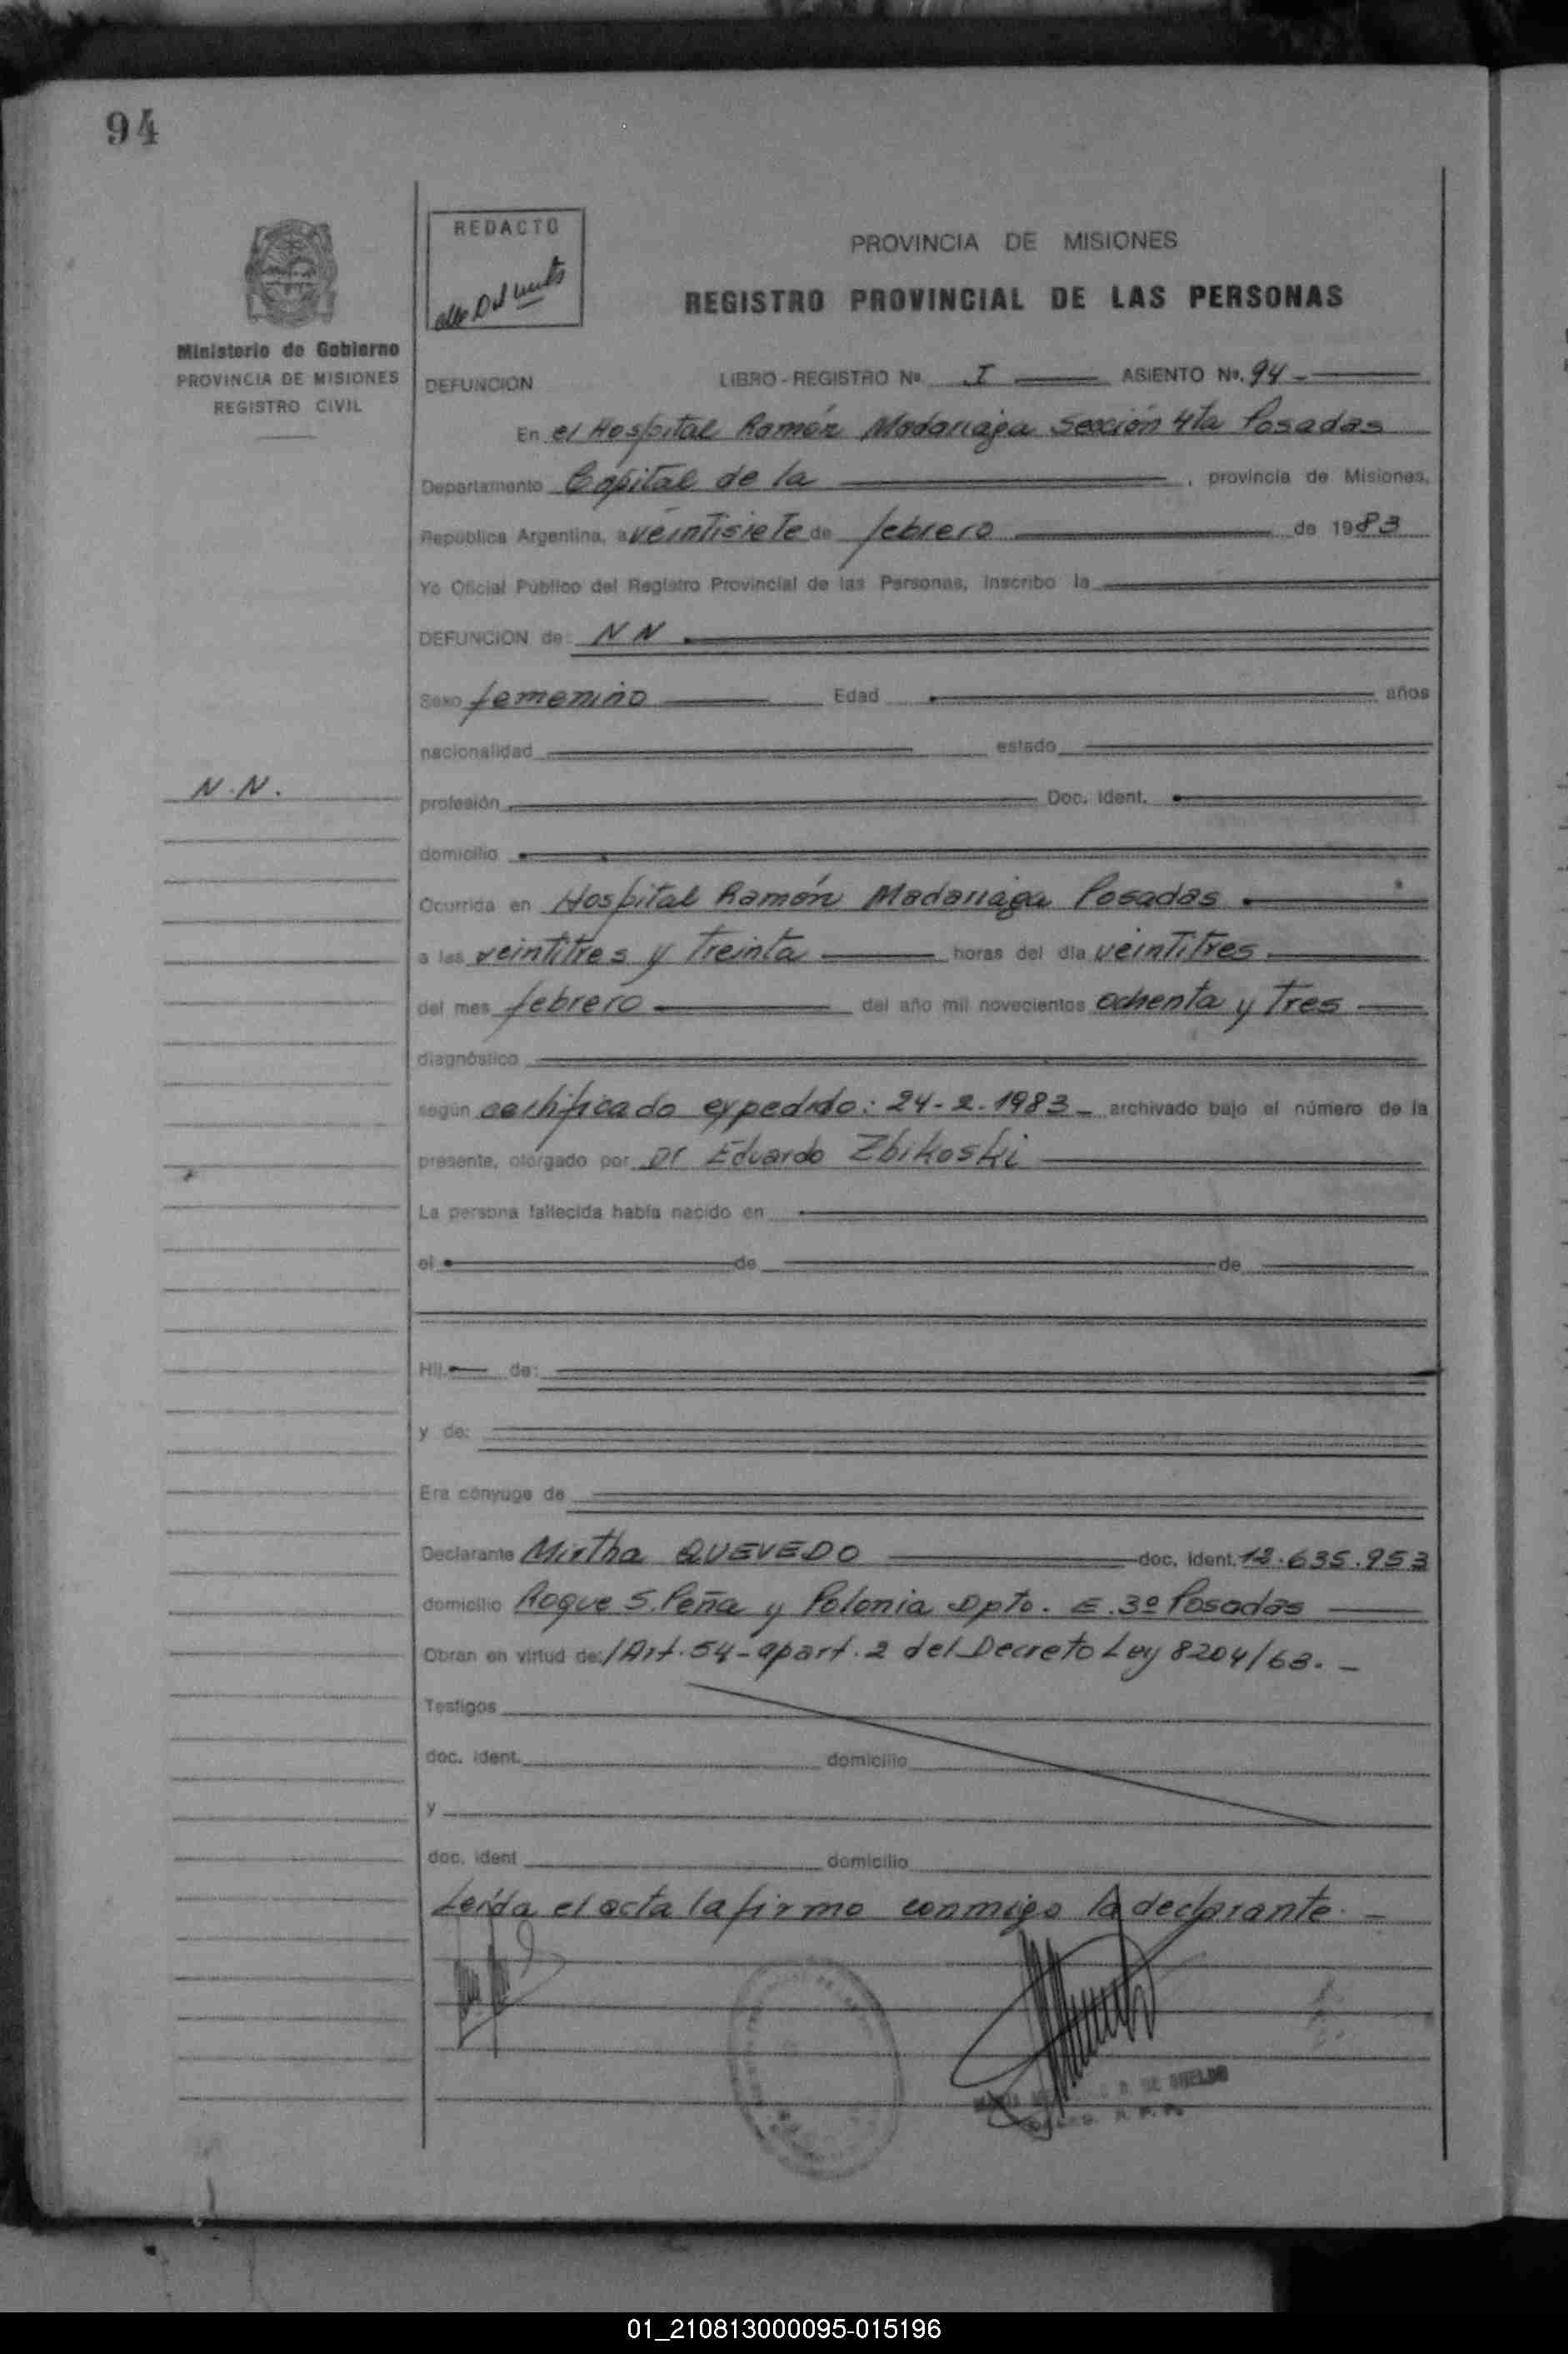 94
REDACTO
PROVINCIA DE MISIONES
REGISTRO PROVINCIAL DE LAS PERSONAS
Ministerio de Gobierno
PROVINCIA DE MISIONES
REGISTRO CIVIL
DEFUNCION LIBRO-REGISTRO Nº I ASIENTO Nº. 94-
En el Hospital Ramón Madariaga Sección 4ta Posadas
Departamento Capital de la , provincia de Misiones,
República Argentina, a veintisiete de febrero de 1983
Yo Oficial Público del Registro Provincial de las Personas, inscribo la
DEFUNCION de: NN
Sexo femenino Edad años
nacionalidad estado
N.N.
profesión Doc. Ident.
domicilio
Ocurrida en Hospital Ramón Madariaga Posadas
a las veintitres y treinta horas del día veintitres
del mes febrero del año mil novecientos ochenta y tres
diagnóstico
según certificado expedido: 24-2-1983- archivado bajo el número de la
presente, otorgado por Dr Eduardo Zbikoski
La persona fallecida había nacido en
el de de
Hij de:
y de:
Era cónyuge de
Declarante Mirtha QUEVEDO doc. ident. 12.635.953
domicilio Roque S. Peña y Polonia Dpto. E. 3º Posadas
Obran en virtud de: Art. 54- apart. 2 del Decreto Ley 8204/63.-
Testigos
doc. ident. domicilio
y
doc. ident domicilio
Leída el acta la firma conmigo la declarante.-
01_210813000095-015196